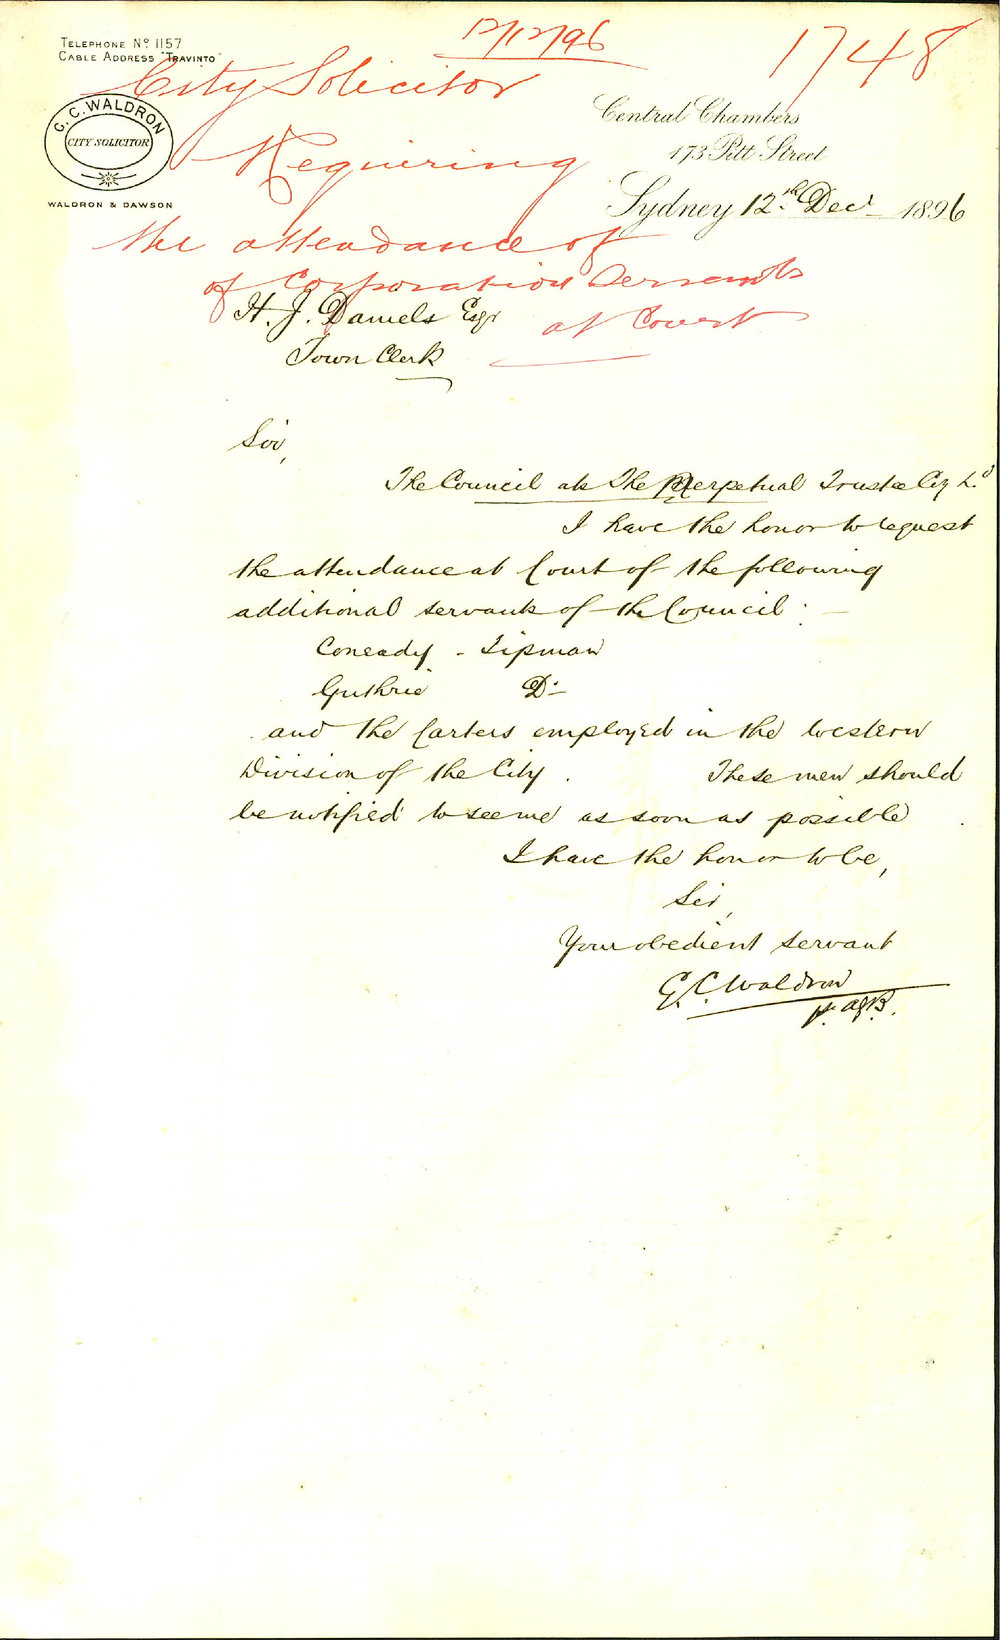 12/12/96
1748
TELEPHONE Nº 1157
CABLE ADDRESS "TRAVINTO"
City Solicitor
G. C. WALDRON
CITY SOLICITOR
WALDRON & DAWSON
Central Chambers
173 Pitt Street
Requiring
Sydney 12th Decr 1896
the attendance of
of Corporation Servants
at Court
H. J. Daniels Esqr
Town Clerk
Sir,
The Council ats The Perpetual Trustee Coy Ld
I have the honor to request
the attendance at Court of the following
additional servants of the Council : —
Coneady - Tipman
Guthrie Do
and the Carters employed in the Western
Division of the City. These men should
be notified to see me as soon as possible
I have the honor to be,
Sir,
Your obedient servant
G. C. Waldron